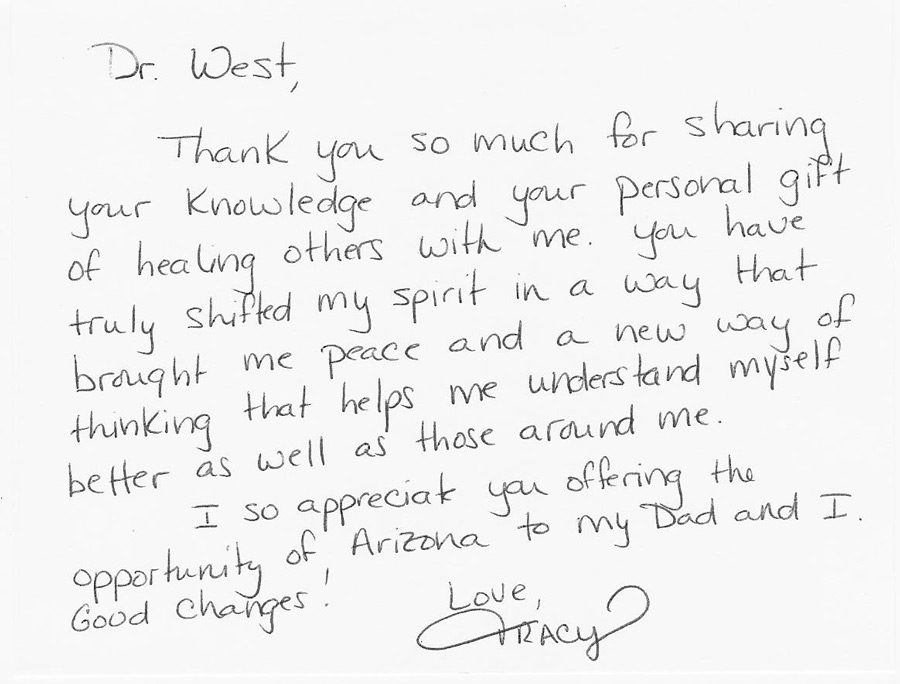 Dr. West,
Thank you so much for sharing
your knowledge and your personal gift
of healing others with me. You have
truly shifted my spirit in a way that
brought me peace and a new way of
thinking that helps me understand myself
better as well as those around me.
I so appreciate you offering the
opportunity of Arizona to my Dad and I.
Good Changes!
Love,
TRACY